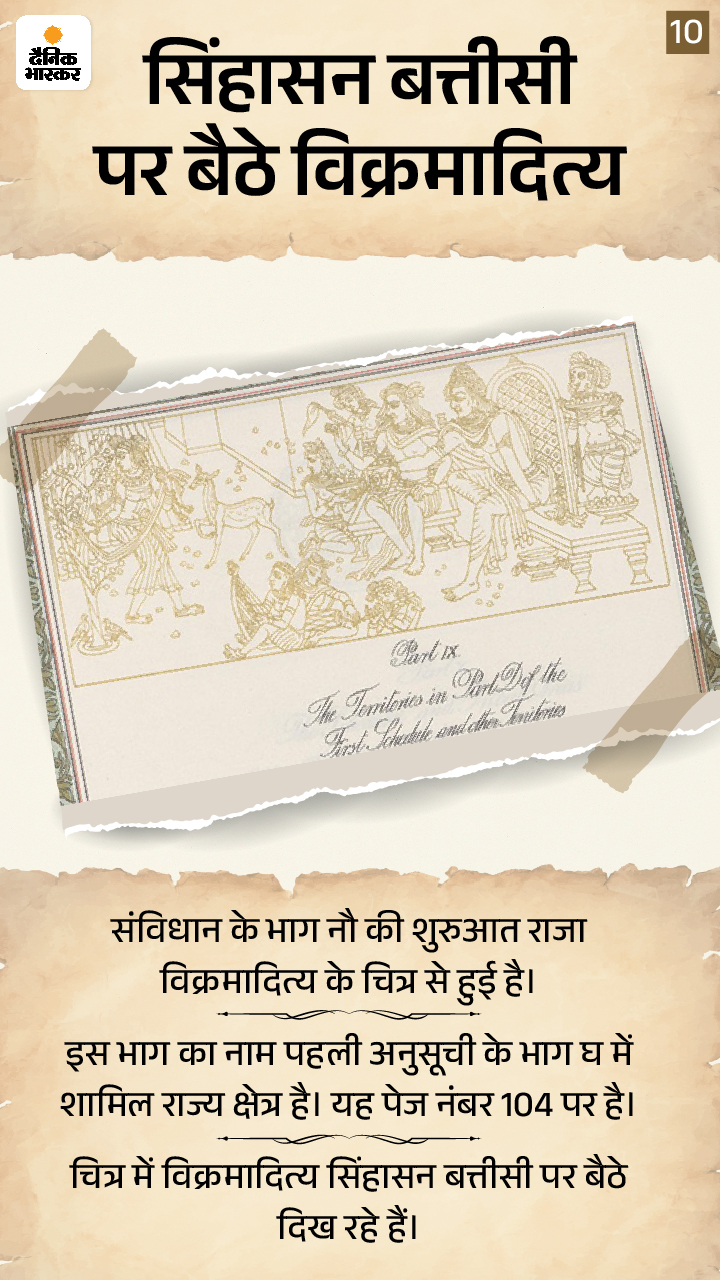 दैनिक
भास्कर
10
सिंहासन बत्तीसी
पर बैठे विक्रमादित्य
Part IX
The Territories in Part D of the
First Schedule and other Territories
संविधान के भाग नौ की शुरुआत राजा
विक्रमादित्य के चित्र से हुई है।
इस भाग का नाम पहली अनुसूची के भाग घ में
शामिल राज्य क्षेत्र है। यह पेज नंबर 104 पर है।
चित्र में विक्रमादित्य सिंहासन बत्तीसी पर बैठे
दिख रहे हैं।